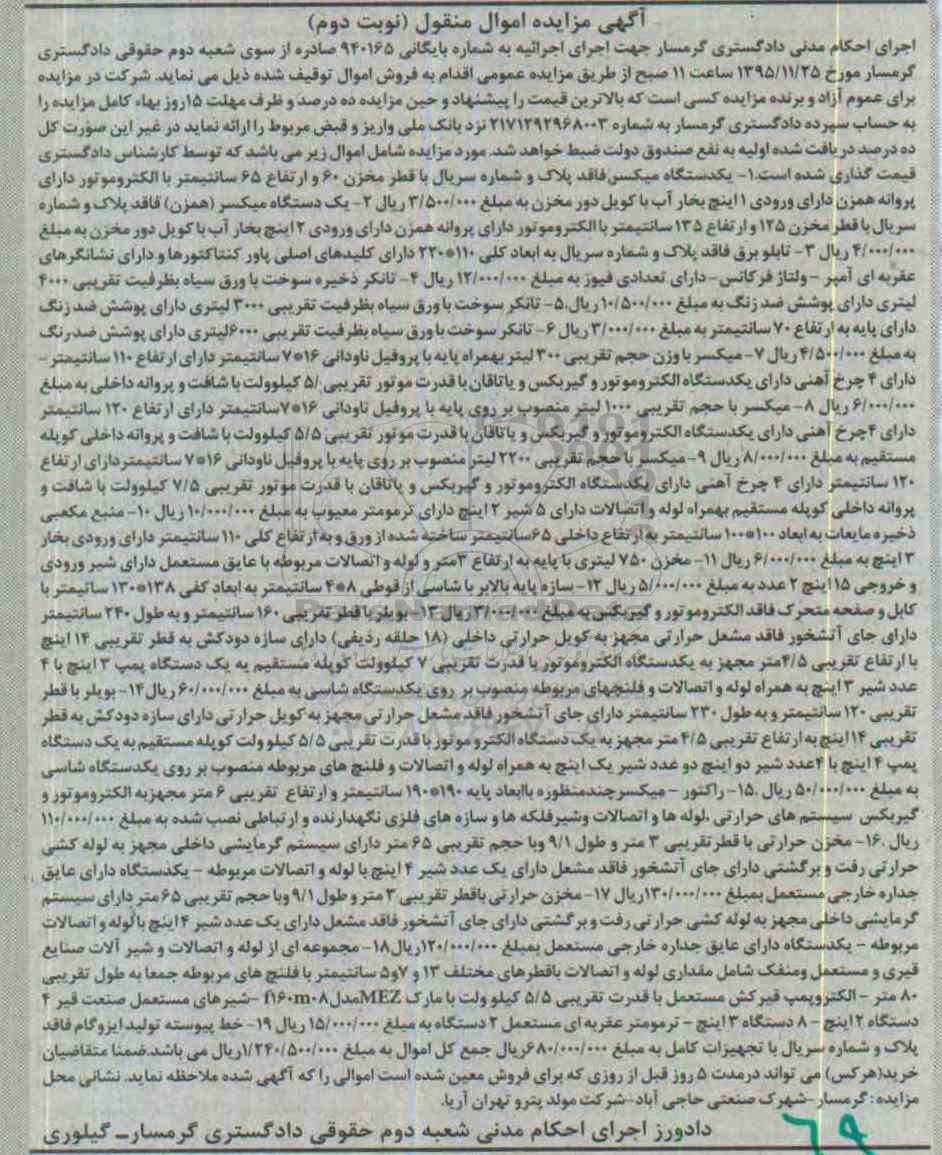 آگهی مزایده اموال منقول (نوبت دوم)
اجرای احکام مدنی دادگستری گرمسار جهت اجرای اجرائیه به شماره بایگانی ۹۴۰۱۶۵ صادره از سوی شعبه دوم حقوقی دادگستری
گرمسار مورخ ۱۳۹۵/۱۱/۲۵ ساعت ۱۱ صبح از طریق مزایده عمومی اقدام به فروش اموال توقیف شده ذیل می نماید. شرکت در مزایده
برای عموم آزاد و برنده مزایده کسی است که بالاترین قیمت را پیشنهاد و حین مزایده ده درصد و ظرف مهلت ۱۵روز بهاء کامل مزایده را
به حساب سپرده دادگستری گرمسار به شماره ۲۱۷۱۲۹۲۹۶۸۰۰۳ نزد بانک ملی واریز و قبض مربوط را ارائه نماید در غیر این صورت کل
ده درصد دریافت شده اولیه به نفع صندوق دولت ضبط خواهد شد. مورد مزایده شامل اموال زیر می باشد که توسط کارشناس دادگستری
قیمت گذاری شده است.۱- یکدستگاه میکسرفاقد پلاک و شماره سریال با قطر مخزن ۶۰ و ارتفاع ۶۵ سانتیمتر با الکتروموتور دارای
پروانه همزن دارای ورودی ۱ اینچ بخار آب با کویل دور مخزن به مبلغ ۳/۵۰۰/۰۰۰ ریال ۲- یک دستگاه میکسر (همزن) فاقد پلاک و شماره
سریال با قطر مخزن ۱۲۵ و ارتفاع ۱۳۵ سانتیمتر با الکتروموتور دارای پروانه همزن دارای ورودی ۲ اینچ بخار آب با کویل دور مخزن به مبلغ
۴/۰۰۰/۰۰۰ ریال ۳- تابلو برق فاقد پلاک و شماره سریال به ابعاد کلی ۱۱۰*۲۲۰ دارای کلیدهای اصلی پاور کنتاکتورها و دارای نشانگرهای
عقربه ای آمپر -ولتاژ فرکانس-دارای تعدادی فیوز به مبلغ ۱۲/۰۰۰/۰۰۰ ریال ۴- تانکر ذخیره سوخت با ورق سیاه بظرفیت تقریبی ۴۰۰۰
لیتری دارای پوشش ضد زنگ به مبلغ ۱۰/۵۰۰/۰۰۰ریال.۵- تانکر سوخت با ورق سیاه بظرفیت تقریبی ۳۰۰۰ لیتری دارای پوشش ضد زنگ
دارای پایه به ارتفاع ۷۰ سانتیمتر به مبلغ ۳/۰۰۰/۰۰۰ ریال ۶- تانکر سوخت با ورق سیاه بظرفیت تقریبی ۶۰۰۰لیتری دارای پوشش ضد رنگ
به مبلغ ۴/۵۰۰/۰۰۰ ریال ۷- میکسر با وزن حجم تقریبی ۳۰۰ لیتر بهمراه پایه با پروفیل ناودانی ۱۶*۷ سانتیمتر دارای ارتفاع ۱۱۰ سانتیمتر-
دارای ۴ چرخ آهنی دارای یکدستگاه الکتروموتور و گیربکس و یاتاقان با قدرت موتور تقریبی ۵/ کیلوولت با شافت و پروانه داخلی به مبلغ
۶/۰۰۰/۰۰۰ ریال ۸- میکسر با حجم تقریبی ۱۰۰۰ لیتر منصوب بر روی پایه با پروفیل ناودانی ۱۶*۷سانتیمتر دارای ارتفاع ۱۲۰ سانتیمتر
دارای ۴چرخ آهنی دارای یکدستگاه الکتروموتور و گیربکس و یاتاقان با قدرت موتور تقریبی ۵/۵ کیلوولت با شافت و پروانه داخلی کوپله
مستقیم به مبلغ ۸/۰۰۰/۰۰۰ ریال ۹- میکسر با حجم تقریبی ۲۲۰۰ لیتر منصوب بر روی پایه با پروفیل ناودانی ۱۶*۷ سانتیمتردارای ارتفاع
۱۲۰ سانتیمتر دارای ۴ چرخ آهنی دارای یکدستگاه الکتروموتور و گیربکس و یاتاقان با قدرت موتور تقریبی ۷/۵ کیلوولت با شافت و
پروانه داخلی کوپله مستقیم بهمراه لوله و اتصالات دارای ۵ شیر ۲ اینچ دارای ترمومتر معیوب به مبلغ ۱۰/۰۰۰/۰۰۰ ریال ۱۰- منبع مکعبی
ذخیره مایعات به ابعاد ۱۰۰*۱۰۰ سانتیمتر به ارتفاع داخلی ۶۵سانتیمتر ساخته شده از ورق و به ارتفاع کلی ۱۱۰ سانتیمتر دارای ورودی بخار
۳ اینچ به مبلغ ۶/۰۰۰/۰۰۰ ریال ۱۱- مخزن ۷۵۰ لیتری با پایه به ارتفاع ۳متر و لوله و اتصالات مربوطه با عایق مستعمل دارای شیر ورودی
و خروجی ۱۵اینچ ۲ عدد به مبلغ ۵/۰۰۰/۰۰۰ ریال ۱۲-سازه پایه بالابر با شاسی از قوطی ۸*۴ سانتیمتر به ابعاد کفی ۱۳۸*۱۳۰ سانتیمتر با
کابل و صفحه متحرک فاقد الکتروموتور و گیربکس به مبلغ ۳/۰۰۰/۰۰۰ ریال ۱۳- بویلر با قطر تقریبی ۱۶۰ سانتیمتر و به طول ۲۴۰ سانتیمتر
دارای جای آتشخور فاقد مشعل حرارتی مجهز به کویل حرارتی داخلی (۱۸ حلقه ردیفی) دارای سازه دودکش به قطر تقریبی ۱۴ اینچ
با ارتفاع تقریبی ۴/۵متر مجهز به یکدستگاه الکتروموتور با قدرت تقریبی ۷ کیلوولت کوپله مستقیم به یک دستگاه پمپ ۳ اینچ با ۴
عدد شیر ۳ اینچ به همراه لوله و اتصالات و فلنجهای مربوطه منصوب بر روی یکدستگاه شاسی به مبلغ ۶۰/۰۰۰/۰۰۰ ریال۱۴- بویلر با قطر
تقریبی ۱۲۰ سانتیمتر و به طول ۲۳۰ سانتیمتر دارای جای آتشخور فاقد مشعل حرارتی مجهز به کویل حرارتی دارای سازه دودکش به قطر
تقریبی ۱۴اینچ به ارتفاع تقریبی ۴/۵ متر مجهز به یک دستگاه الکتروموتور با قدرت تقریبی ۵/۵ کیلو ولت کوپله مستقیم به یک دستگاه
پمپ ۴ اینچ با ۴عدد شیر دو اینچ دو عدد شیر یک اینچ به همراه لوله و اتصالات و فلنچ های مربوطه منصوب بر روی یکدستگاه شاسی
به مبلغ ۵۰/۰۰۰/۰۰۰ ریال .۱۵- راکتور - میکسرچندمنظوره باابعاد پایه ۱۹۰*۱۹۰ سانتیمتر و ارتفاع تقریبی ۶ متر مجهزبه الکتروموتور و
گیربکس سیستم های حرارتی ،لوله ها و اتصالات وشیرفلکه ها و سازه های فلزی نگهدارنده و ارتباطی نصب شده به مبلغ ۱۱۰/۰۰۰/۰۰۰
ریال .۱۶- مخزن حرارتی با قطرتقریبی ۳ متر و طول ۹/۱ وبا حجم تقریبی ۶۵ متر دارای سیستم گرمایشی داخلی مجهز به لوله کشی
حرارتی رفت و برگشتی دارای جای آتشخور فاقد مشعل دارای یک عدد شیر ۴ اینچ با لوله و اتصالات مربوطه - یکدستگاه دارای عایق
جداره خارجی مستعمل بمبلغ ۱۳۰/۰۰۰/۰۰۰ریال ۱۷- مخزن حرارتی باقطر تقریبی ۳ متر و طول ۹/۱ وبا حجم تقریبی ۶۵ متر دارای سیستم
گرمایشی داخلی مجهز به لوله کشی حرارتی رفت و برگشتی دارای جای آتشخور فاقد مشعل دارای یک عدد شیر ۴ اینچ با لوله و اتصالات
مربوطه - یکدستگاه دارای عایق جداره خارجی مستعمل بمبلغ ۱۲۰/۰۰۰/۰۰۰ریال۱۸- مجموعه ای از لوله و اتصالات و شیر آلات صنایع
قیری و مستعمل ومنفک شامل مقداری لوله و اتصالات باقطرهای مختلف ۱۳ و ۷و۵ سانتیمتر با فلنچ های مربوطه جمعا به طول تقریبی
۸۰ متر - الکتروپمپ قیرکش مستعمل با قدرت تقریبی ۵/۵ کیلو ولت با مارک MEZمدلf۱۶۰m۰۸ -شیرهای مستعمل صنعت قیر ۴
دستگاه ۲ اینچ - ۸ دستگاه ۳ اینچ - ترمومتر عقربه ای مستعمل ۲ دستگاه به مبلغ ۱۵/۰۰۰/۰۰۰ ریال ۱۹- خط پیوسته تولید ایزوگام فاقد
پلاک و شماره سریال با تجهیزات کامل به مبلغ ۶۸۰/۰۰۰/۰۰۰ریال جمع کل اموال به مبلغ ۱/۲۴۰/۵۰۰/۰۰۰ریال می باشد.ضمنا متقاضیان
خرید(هرکس) می تواند درمدت ۵ روز قبل از روزی که برای فروش معین شده است اموالی را که آگهی شده ملاحظه نماید. نشانی محل
مزایده: گرمسار-شهرک صنعتی حاجی آباد-شرکت مولد پترو تهران آریا.
دادورز اجرای احکام مدنی شعبه دوم حقوقی دادگستری گرمسار- گیلوری
۶۹